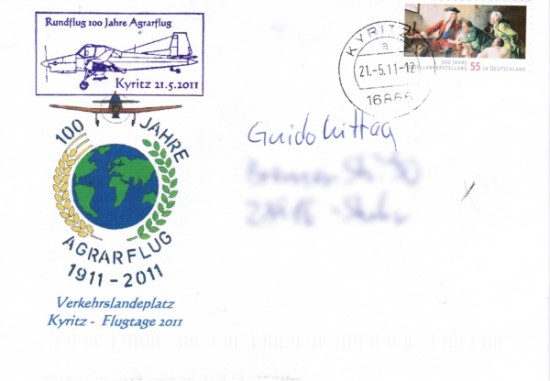 Rundflug 100 Jahre Agrarflug
Kyritz 21.5.2011
100 JAHRE
AGRARFLUG
1911-2011
Verkehrslandeplatz
Kyritz - Flugtage 2011
KYRITZ
a
21.-5.11-12
16866
300 JAHRE
55 IN DEUTSCHLAND
Guido Wittag